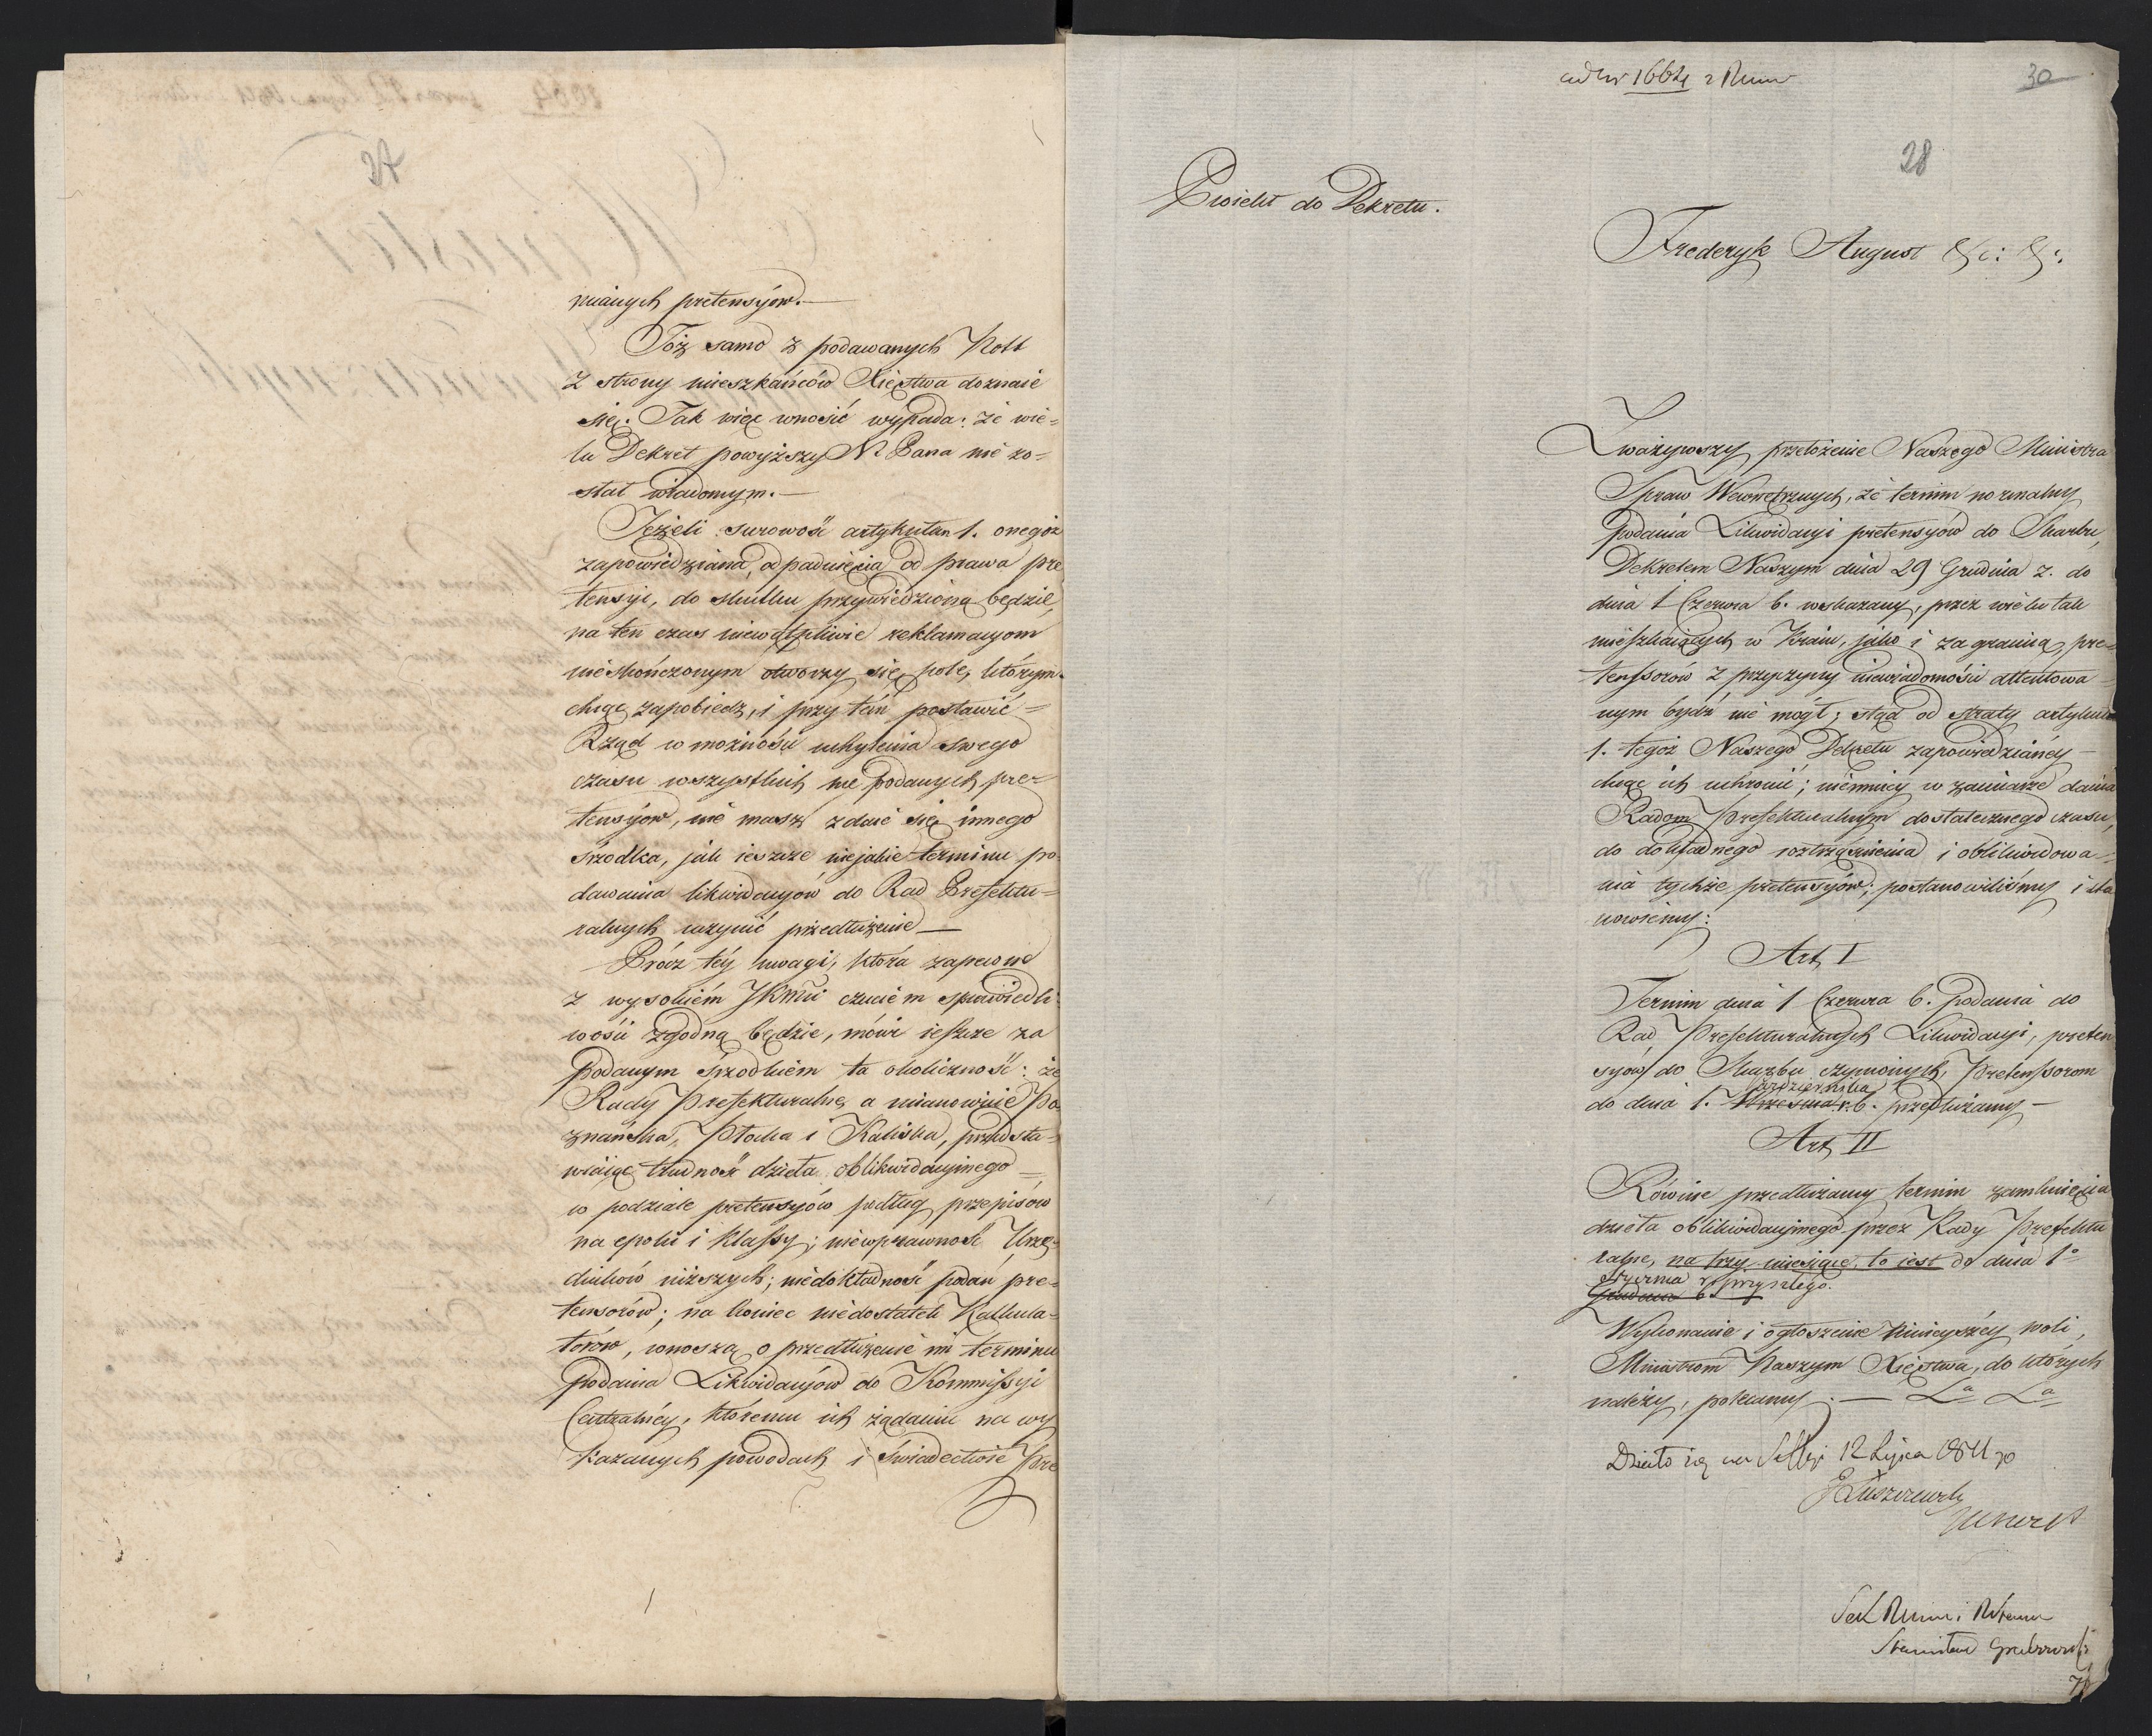 27
nianych pretensyów.—
Toż samo z podawanych Nott
z strony mieszkańców Xięstwa doznaie
się. Tak więc wnosić wypada: że wie=
lu Dekret powyższy N. Pana nie zo=
stał wiadomym.—
Jeżeli surowość artykułem 1. onegoż
zapowiedziana, odpadnięcia od prawa pre
tensyi, do skutku przywiedzioną będzie,
na ten czas niewątpliwie reklamacyom
nieskończonym otworzy się pole, którym
chcąc zapobiedz, i przy tém postawić=
Rząd w możności uchylenia swego
czasu wszystkich nie podanych pre=
tensyów, nie masz zdaie się innego
śrzodka, jak ieszcze niejakie terminu po=
dawania likwidacyów do Rad Prefektu=
ralnych uczynić przedłużenie—
Prócz téy uwagi, która zapewne
z wysokiém JKMci czuciem sprawiedli=
wości zgodną będzie, mówi ieszcze za
podanym śrzodkiem ta okoliczność: że
Rady Prefekturalne, a mianowicie Po
znańska, Płocka i Kaliska, przedsta=
wiaiąc trudność dzieła oblikwidacyinego=
w podziale pretensyów podług przepisów
na epoki i klassy; niewprawność Urzę=
dników niższych; niedokładność podań pre=
tensorów; na koniec niedostatek Kalkula=
torów, wnoszą o przedłużenie im terminu
podania Likwidacyów do Kommissyi
Centralnéy, któremu ich żądaniu na wy
kazanych powodach i świadectwie Pre
ad Nr 1664
30
28
Proiekt do Dekretu.
Frederyk August &c: &c:
Zważywszy przełożenie Naszego Ministra
Spraw Wewnętrznych, że termin normalny
podania Likwidacyi pretensyów do Skarbu,
Dekretem Naszym dnia 29 Grudnia z. do
dnia 1 Czerwca b. wskazany, przez wielu tak
mieszkaiących w Kraiu, jako i za granicą, pre=
tenssorów z przyczyny niewiadomości attentowa=
nym bydź nie mógł; stąd od straty artykułem
1. tegoż Naszego Dekretu zapowiedzianéy—
chcąc ich uchronić; niemniéy w zamiarze dania
Radom Prefekturalnym dostatecznego czasu,
do dokładnego roztrząśnienia i oblikwidowa=
nia tychże pretensyów; postanowiliśmy i sta
nowiemy:
Art I
Termin dnia 1 Czerwca b. podania do
Rad Prefekturalnych Likwidacyi, preten
syów do Skarbu czynionych, Pretenssorom
Października
do dnia 1. Września r. b. przedłużamy—
Art II
Równie przedłużamy termin zamknięcia
dzieła oblikwidacyinego przez Rady Prefektu
ralne, na trzy miesiące, to iest do dnia 1o
Stycznia r. przyszłego.
Grudnia b.
Wykonanie i ogłoszenie ninieyszéy woli,
Ministrom Naszym Xięstwa, do których
należy, polecamy.— La La
Działo się na Sessyi 12 Lipca 1811 ro
JŁuszczewski
Stanisław Grabowski